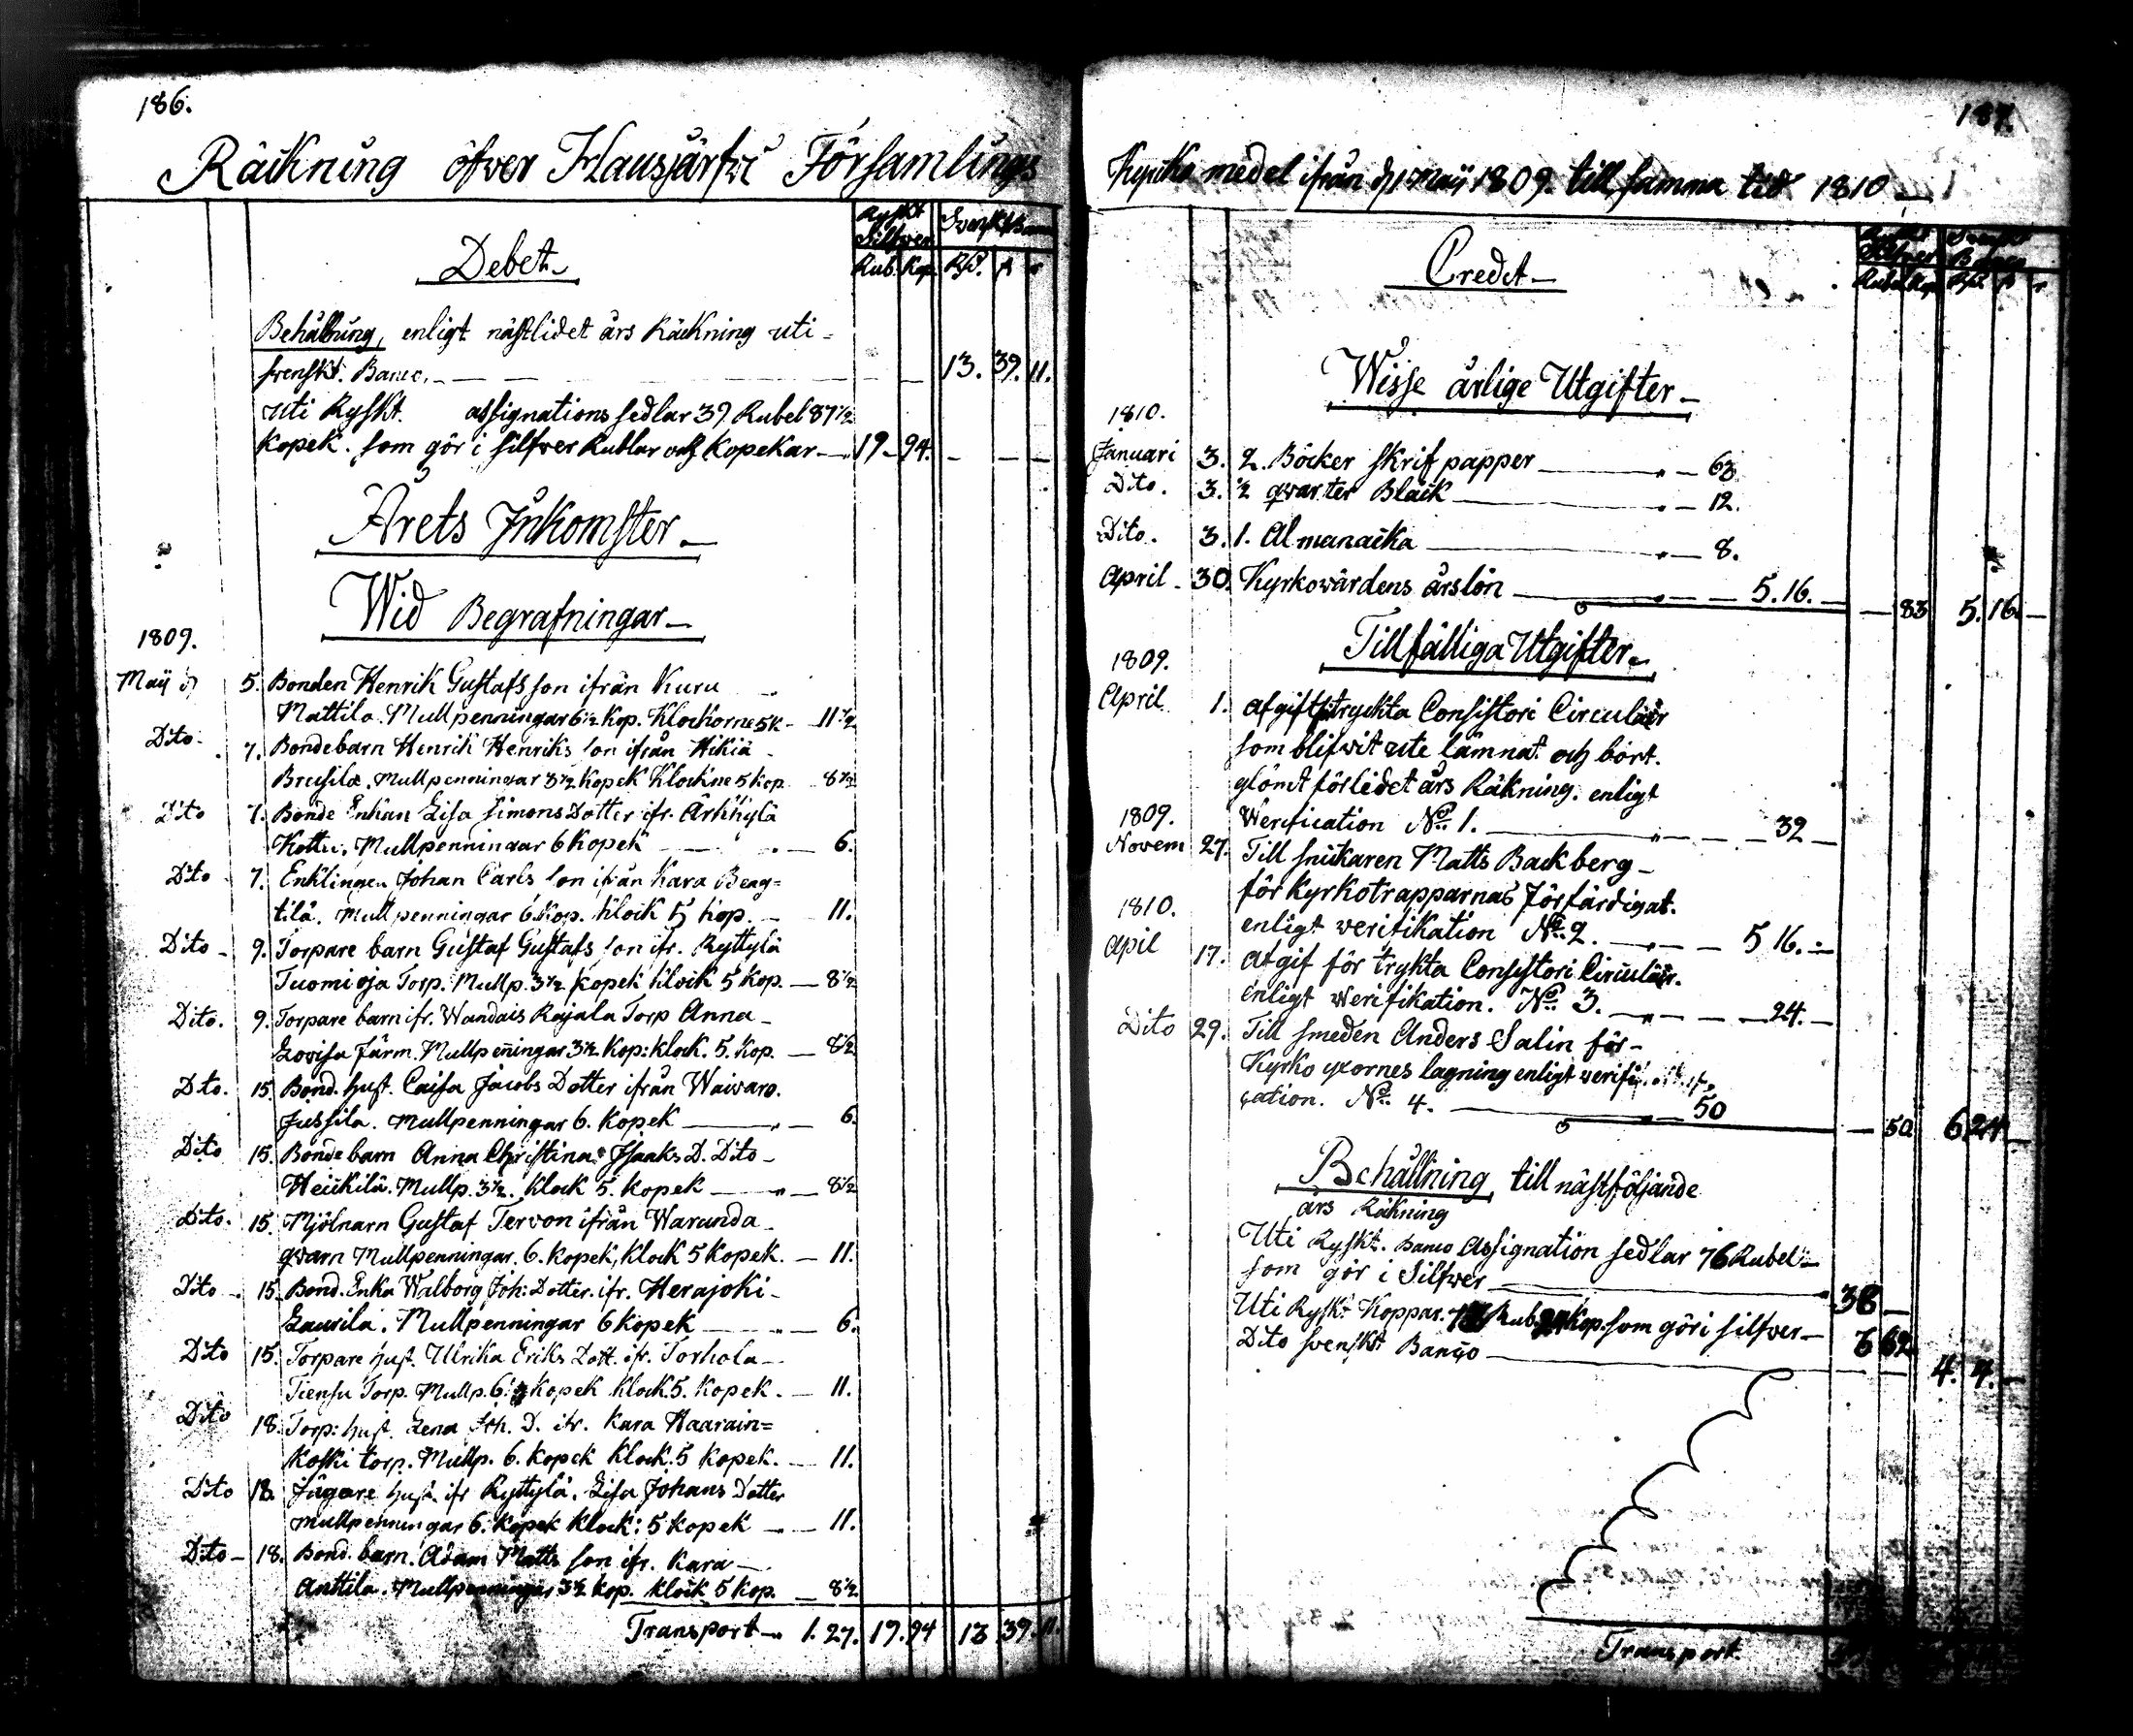 186.
Räckning öfver Hausjärfwi Församlings
Ryskt Silfwer
Svenskt Banco
Rub. Kop. R.d. s r
Debet
Behållning, enligt nästlidet års Räckning uti
svenskt. Banco. 13. 39. 11.
uti Ryskt. assignations sedlar 39 Rubel 87 1/2
Kopek. som gör i silfver Rublar och Kopekar 19 94.
Årets Inkomster
Wid Begrafningar
1809.
Maij d 5. Bonden Henrik Gustafs son ifrån Kuru
Mattila. Mullpenningar 6 1/2 Kop. Klockorne 5 K 11 1/2
Dito 7. Bondebarn Henrik Henriks son ifrån Hikiä
Mullpenningar 3 1/2 Kopek Klockne 5 Kop 8 1/2
Dito 7. Bonde Enkan Lisa Simons Dotter ifr. Arhkylä
Kottu. Mullpenningar 6 Kopek 6.
Dito 7. Enklingen Johan Carls son ifrån Kara Beng=
tilä. Mullpenningar 6. Kop. Klock 5 Kop. 11.
Dito 9. Torpare barn Gustaf Gustafs son ifr. Ryttylä
Tuomioja Torp. Mullp. 3 1/2 Kopek Klock 5 Kop. 8 1/2
Dito. 9. Torpare barn ifr. Wandais Rajala Torp Anna
Lovisa Järm. Mullpenningar 3 1/2 Kop: Klock. 5. Kop. 8 1/2
Dito. 15. Bond. hust. Caisa Jacobs Dotter ifrån Waiwaro.
Jussila. Mullpenningar 6. Kopek 6.
Dito 15. Bonde barn Anna Christina Isaaks D. Dito
Heikkilä. Mullp. 3 1/2. Klock 5. Kopek 8 1/2
Dito. 15. Mjölnarn Gustaf Tervon ifrån Warunda
qwarn Mullpenningar. 6. Kopek, Klock 5 Kopek. 11.
Dito 15. Bond. Enka Walborg Joh: Dotter. ifr. Herajoki
Laurila. Mullpenningar 6 Kopek 6.
Dito 15. Torpare hust. Ulrika Eriks Dott. ifr. Torhola
Tiensu Torp. Mullp. 6. Kopek Klock 5. Kopek. 11.
Dito 18. Torp: hust. Lena Joh. D. ifr. Kara Haarain=
Koski torp. Mullp. 6. Kopek Klock. 5 Kopek. 11.
Dito 18. Jägare hust. ifr Ryttylä. Lisa Johans Dotter
mullpenningar 6. Kopek Klock: 5 Kopek 11.
Dito 18. Bond. barn. Adam Matts son ifr. Kara
Anttila. Mullpenningar 3 1/2 Kop. Klock 5 Kop. 8 1/2
Transport 1. 27. 19. 94 13 39. 11.
187.
Kyrko medel ifrån d 1 Maij 1809. till samma tid 1810
Credit
Wisse årlige Utgifter
1810.
Januari 3. 2. Böcker skrif papper 63
Dito. 3. 1/2 qwarter Bläck 12.
Dito. 3. 1. Almanacka 8.
April 30. Kyrkowärdens årslön 5. 16.
83 5. 16.
Tillfälliga Utgifter
1809.
April 1. afgift tryckta Consistori Circulair
som blifwit ute lämnat och bort.
glömt förledet års Räkning. enligt
Werification No. 1. 32
1809.
Novem 27. Till snickaren Matts Backberg
för Kyrkotrapparnas förfärdigat.
enligt werifikation No. 2. 5 16.
1810.
April 17. afgif för tryckta Consistori Circulair.
enligt Werifikation. No. 3. 24.
Dito 29. Till smeden Anders Salin för
Kyrko yxornes lagning enligt werifi
cation. No. 4. 50
50 6 24
Behållning till nästföljande
års Räkning
Uti Ryskt. Banco Assignation sedlar 76 Rubel
som gör i Silfwer 38
Uti Ryskt Koppar. Rub. Kop. som gör i silfver 6 62
Dito svenskt Banco 4. 4.
Transport.